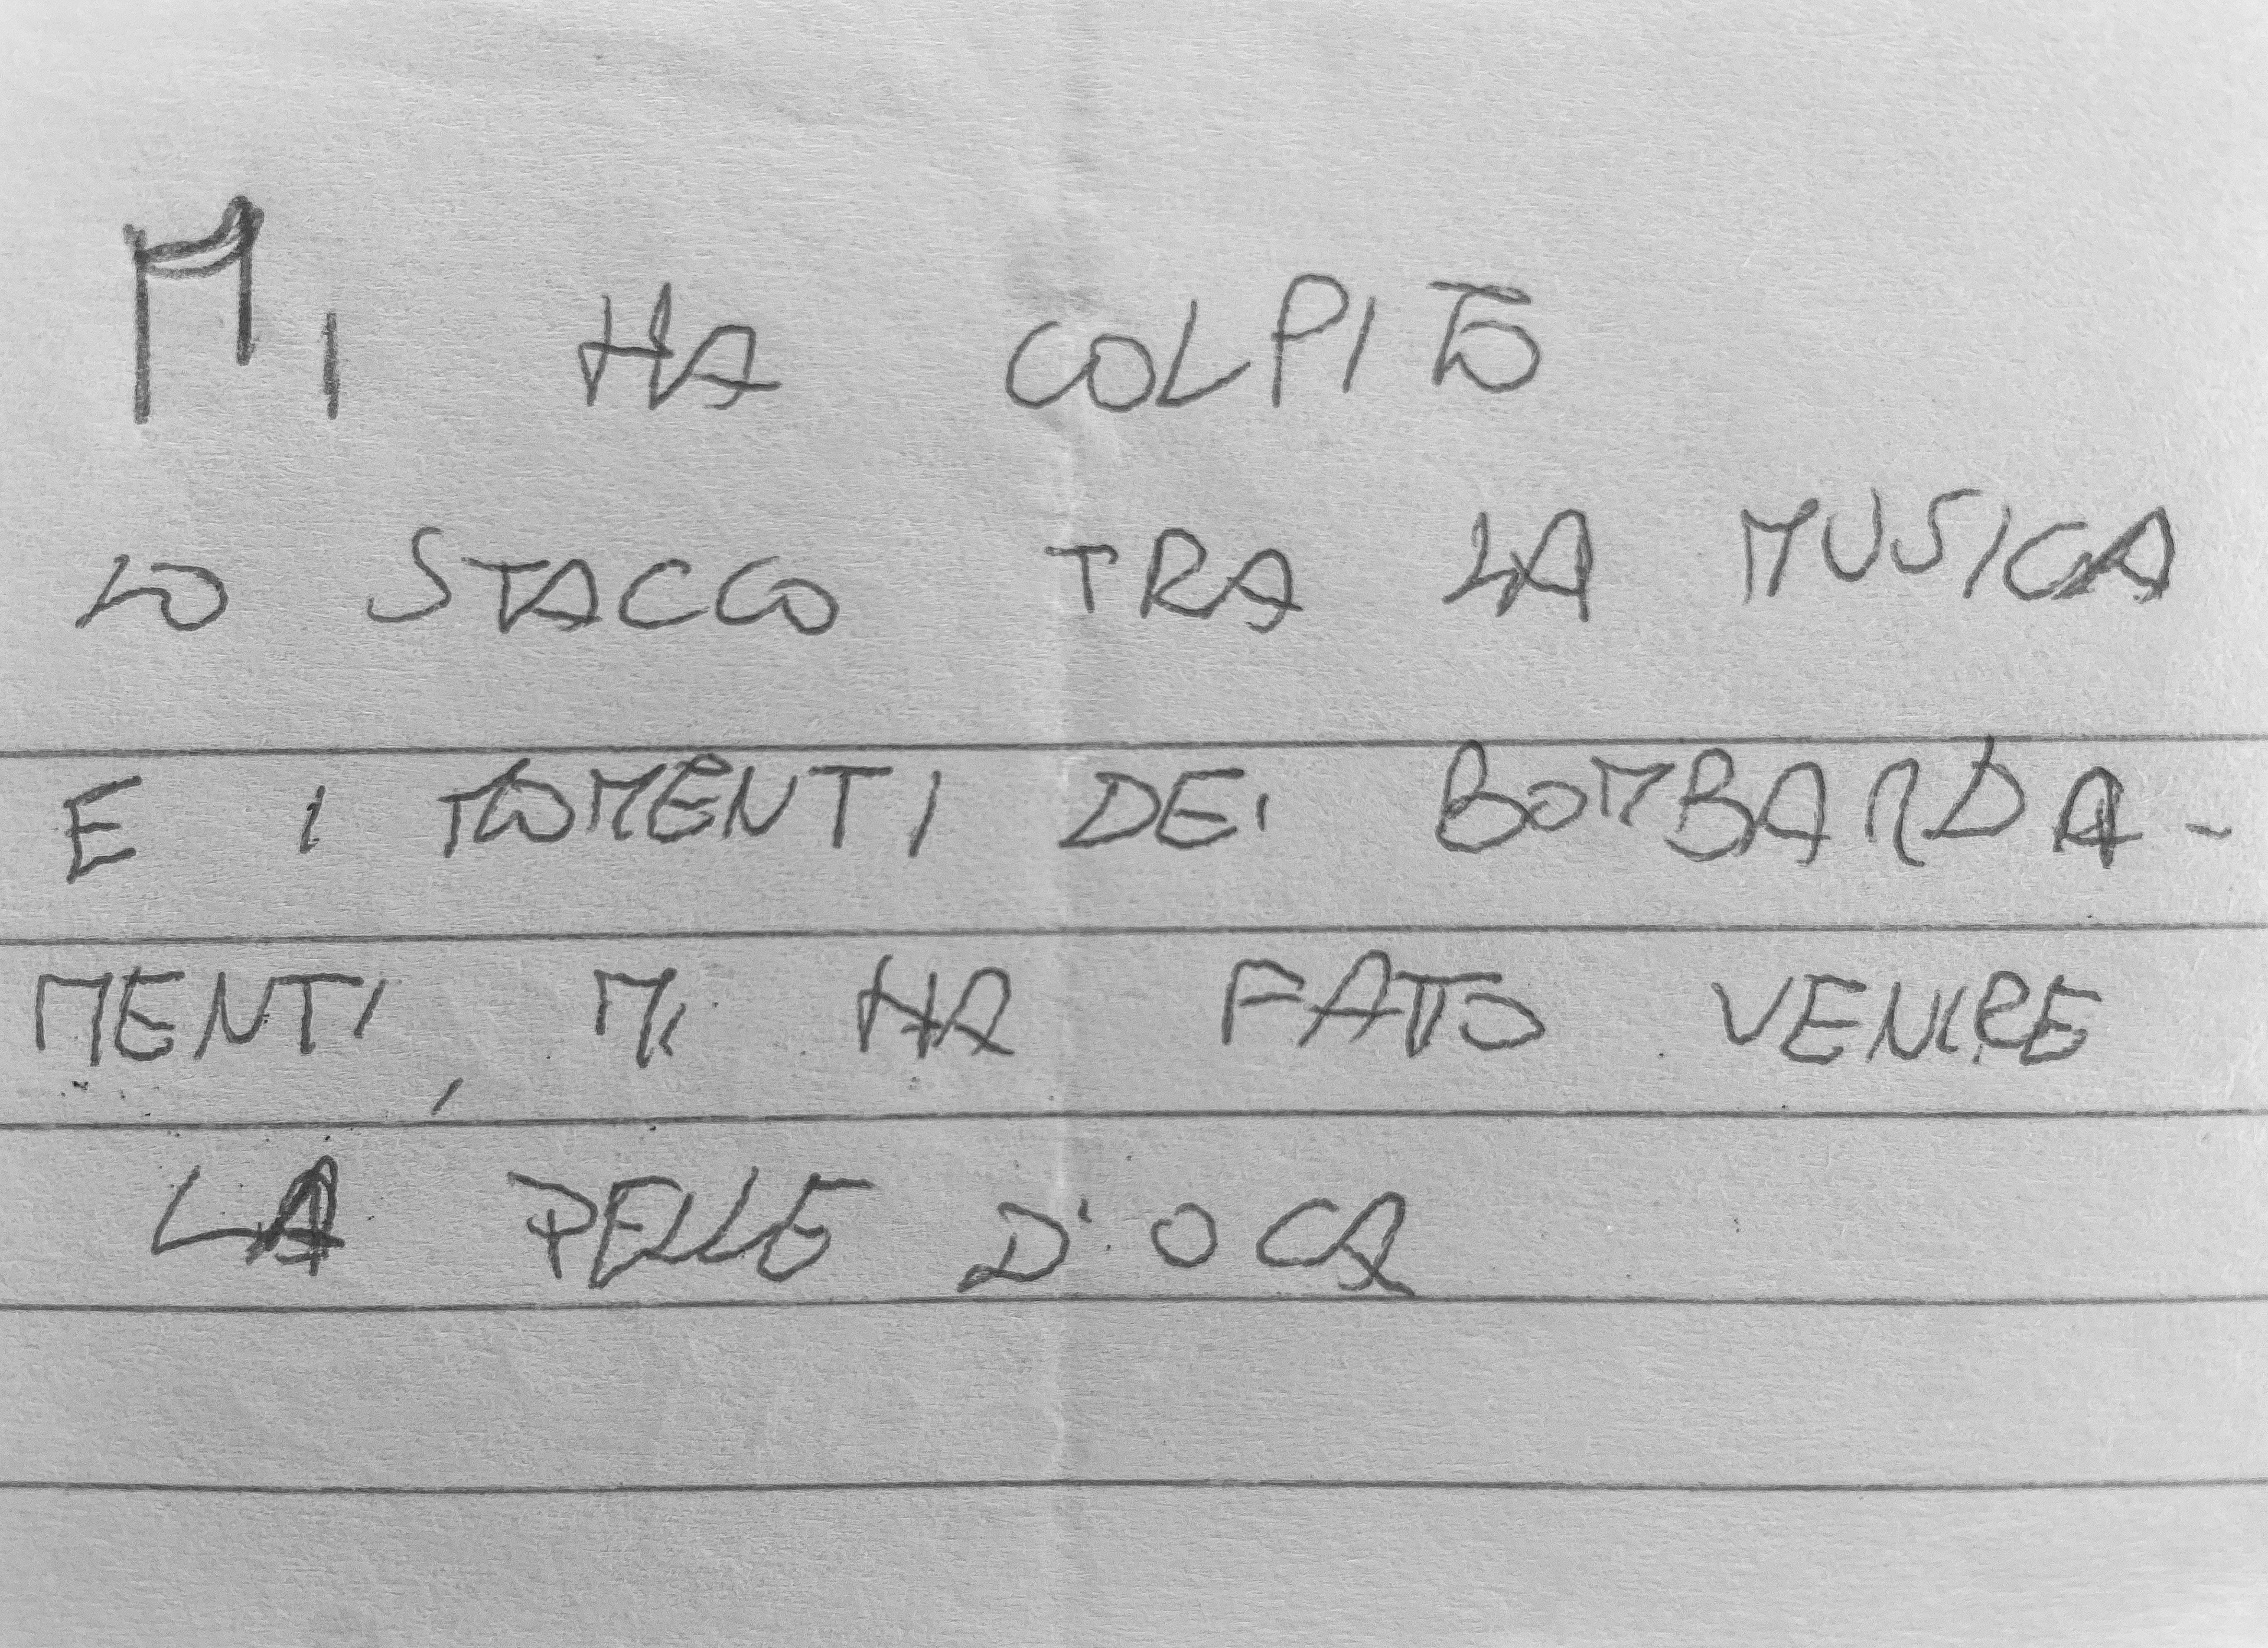 MI HA COLPITO
LO STACCO TRA LA MUSICA
E I MOMENTI DEI BOMBARDA-
MENTI, MI HA FATTO VENIRE
LA PELLE D'OCA